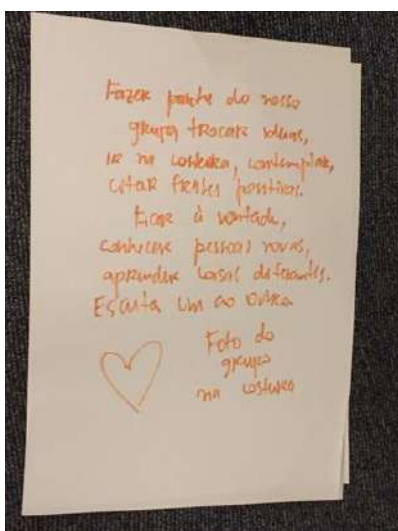 Fazer parte do nosso
grupo, trocar ideias,
ir na costura, contemplar,
citar frases positivas.
Ficar à vontade,
conhecer pessoas novas,
aprender coisas diferentes.
Escuta um ao outro
Foto do
grupo
na costura